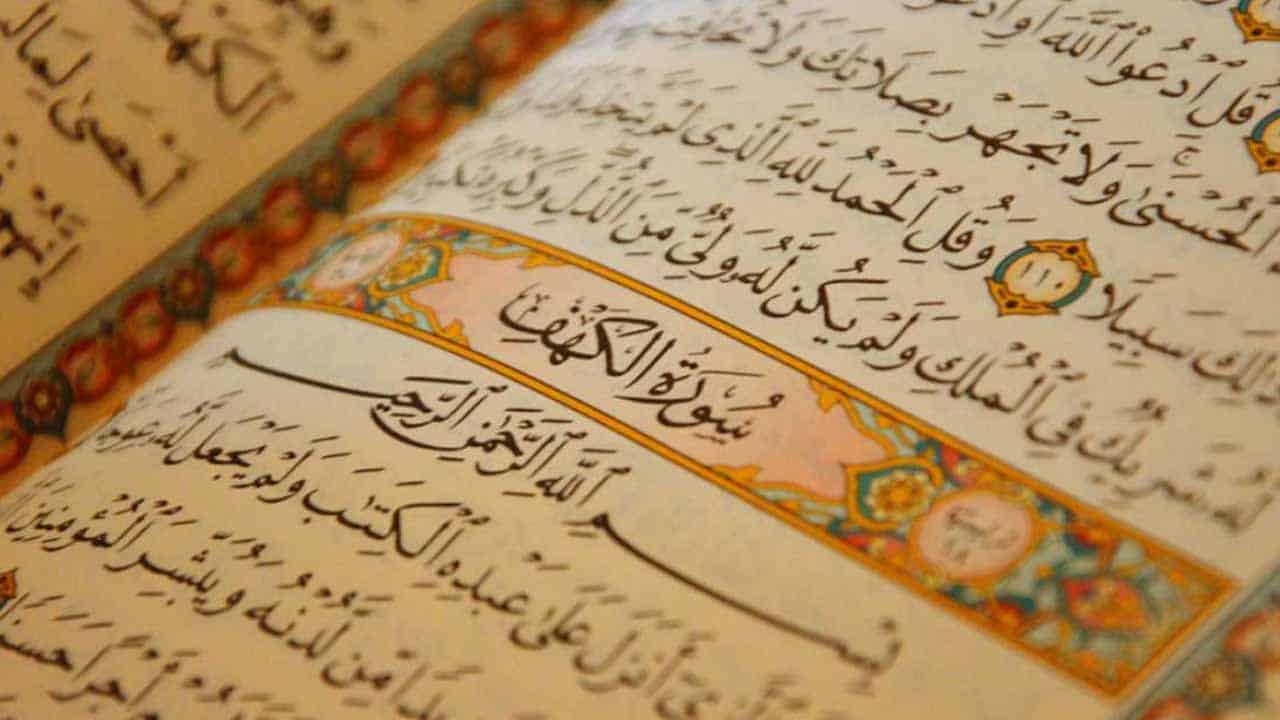 قُلِ ٱدْعُوا۟ ٱللَّهَ أَوِ ٱدْعُوا۟
ٱلْحُسْنَىٰ وَلَا تَجْهَرْ بِصَلَاتِكَ وَلَا تُخَافِتْ
سَبِيلًا ١١٠ وَقُلِ ٱلْحَمْدُ لِلَّهِ ٱلَّذِى لَمْ يَتَّخِذْ
لَّهُۥ شَرِيكٌ فِى ٱلْمُلْكِ وَلَمْ يَكُن لَّهُۥ وَلِىٌّ مِّنَ ٱلذُّلِّ وَكَبِّرْهُ
سُورَةُ الكَهْفِ
بِسْمِ ٱللَّهِ ٱلرَّحْمَٰنِ ٱلرَّحِيمِ
أَنزَلَ عَلَىٰ عَبْدِهِ ٱلْكِتَٰبَ وَلَمْ يَجْعَل لَّهُۥ عِوَجَا
مِّن لَّدُنْهُ وَيُبَشِّرَ ٱلْمُؤْمِنِينَ
أَجْرًا حَسَنًا
ٱلْكَهْفِ
أَحْصَىٰ لِمَا